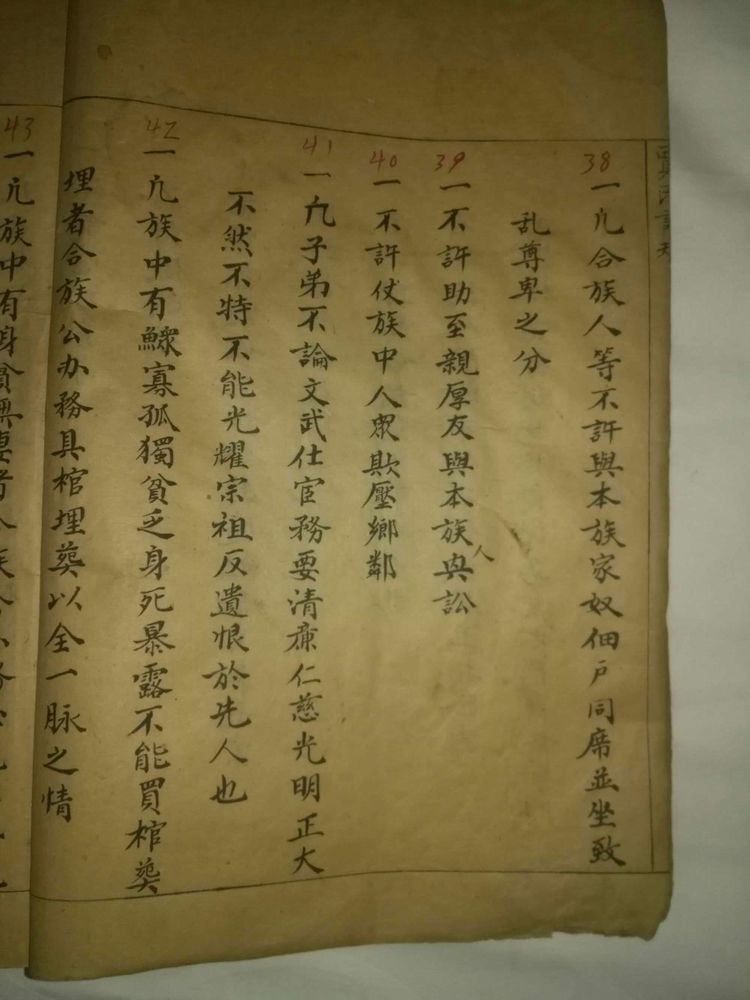 38 一凢合族人等不許與本族家奴佃户同席並坐致
乱尊卑之分
39 一不許助至親厚友與本族人與訟
40 一不許仗族中人眾欺壓鄉鄰
41 一凢子弟不論文武仕宦務要清廉仁慈光明正大
不然不特不能光耀宗祖反遺恨於先人也
42 一凢族中有鰥寡孤獨貧乏身死暴露不能買棺葬
埋者合族公办務具棺埋葬以全一脉之情
43 一凢族中有身貧無